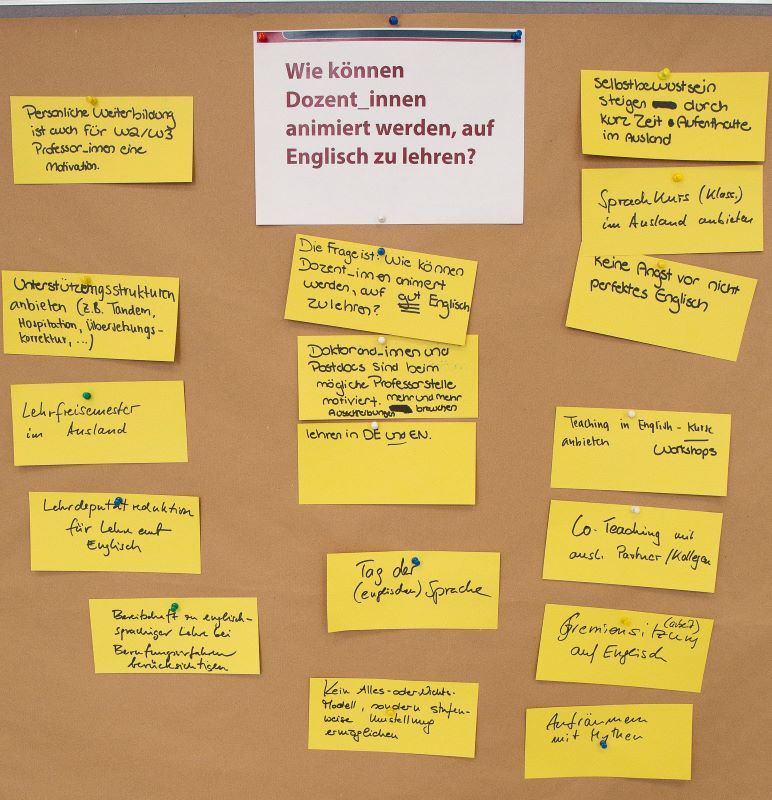 Wie können
Dozent_innen
animiert werden, auf
Englisch zu lehren?
Persönliche Weiterbildung
ist auch für W2/W3
Professor_innen eine
Motivation.
Unterstützungsstrukturen
anbieten (z.B. Tandem,
Hospitation, Übersetzungs-
korrektur, ...)
Lehrfreisemester
im Ausland
Lehrdeputatreduktion
für Lehre auf
Englisch
Bereitschaft zu englisch-
sprachiger Lehre bei
Berufungsverfahren
berücksichtigen
Die Frage ist: Wie können
Dozent_innen animert
werden, auf gut Englisch
zu lehren?
Doktorand_innen und
Postdocs sind beim
mögliche Professorstelle
motiviert. mehr und mehr
Ausschreibungen brauchen
lehren in DE und EN.
Tag der
(englischen) Sprache
Kein Alles-oder-Nichts-
Modell, sondern stufen-
weise Umstellung
ermöglichen
Selbstbewustsein
steigen durch
kurz Zeit Aufenthalte
im Ausland
Sprachkurs (Klass.)
im Ausland anbieten
Keine Angst vor nicht
perfektes Englisch
Teaching in English - Kurse
anbieten Workshops
Co-Teaching mit
ausl. Partner/Kollegen
Gremiensitzung (arbeit)
auf Englisch
Aufräumen
mit Mythen